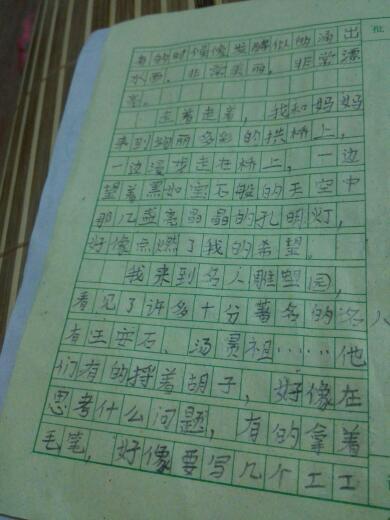 有的时候像发脾似的涌出
水面，非常美丽，非常漂
亮。
走着走着，我和妈妈
来到绚丽多彩的拱桥上，
一边漫步走在桥上，一边
望着黑如宝石般的天空中
那几盏亮晶晶的孔明灯，
好像点燃了我的希望。
我来到名人雕塑园，
看见了许多十分著名的名
人
有王安石、汤显祖……他
们有的捋着胡子，好像在
思考什么问题，有的拿着
毛笔，好像要写几个工工